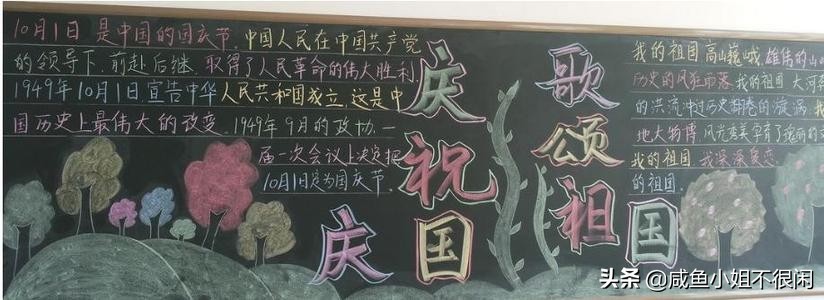 10月1日是中国的国庆节.中国人民在中国共产党
的领导下.前赴后继.取得了人民革命的伟大胜利.
1949年10月1日.宣告中华人民共和国成立.这是中
国历史上最伟大的改变.1949年9月的政协.一
届一次会议上决定把
10月1日定为国庆节.
庆祝国庆
歌颂祖国
我的祖国高山巍峨.雄伟的山
历史的风狂雨落.我的祖国大河
的洪流冲过历史
的漩涡.
地大物博 风光秀美孕育了瑰丽的
我的祖国.我深深
的祖国.
头条 @咸鱼小姐不很闲